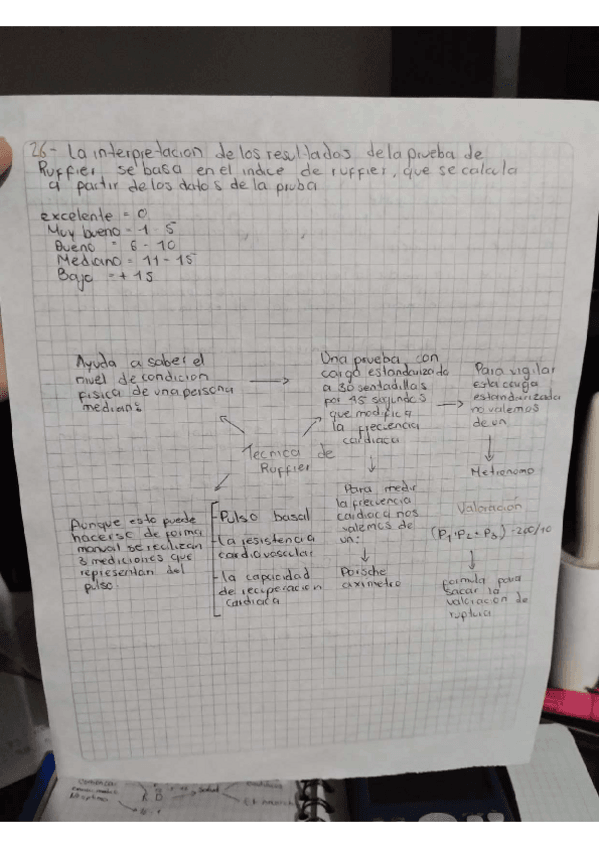 26- La interpretacion de los resultados de la prueba de
Ruffier se basa en el indice de ruffier, que se calcula
a partir de los datos de la pruba
excelente = 0
Muy bueno = 1 - 5
Bueno = 6 - 10
Mediano = 11 - 15
Bajo = + 15
Ayuda a saber el
nivel de condicion
fisica de una persona
mediante
Una prueba, con
carga estandarizada
a 30 sentadillas
por 45 segundos
que modifica
la frecuencia
cardiaca
Para vigilar
esta carga
estandarizada
no valemos
de un
Metronomo
Tecnica de
Ruffier
Aunque esto puede
hacerse de forma
manual se realizan
3 mediciones que
representan del
pulso.
- Pulso basal
- La resistencia
cardiovascular
- la capacidad
de recuperacion
cardiaca
Para medir
la frecuencia
cardiaca nos
valemos de
un:
Porsche
oximetro
Valoracion
(P1+P2+P3) - 200/10
formula para
sacar la
valoracion de
ruptura
salud